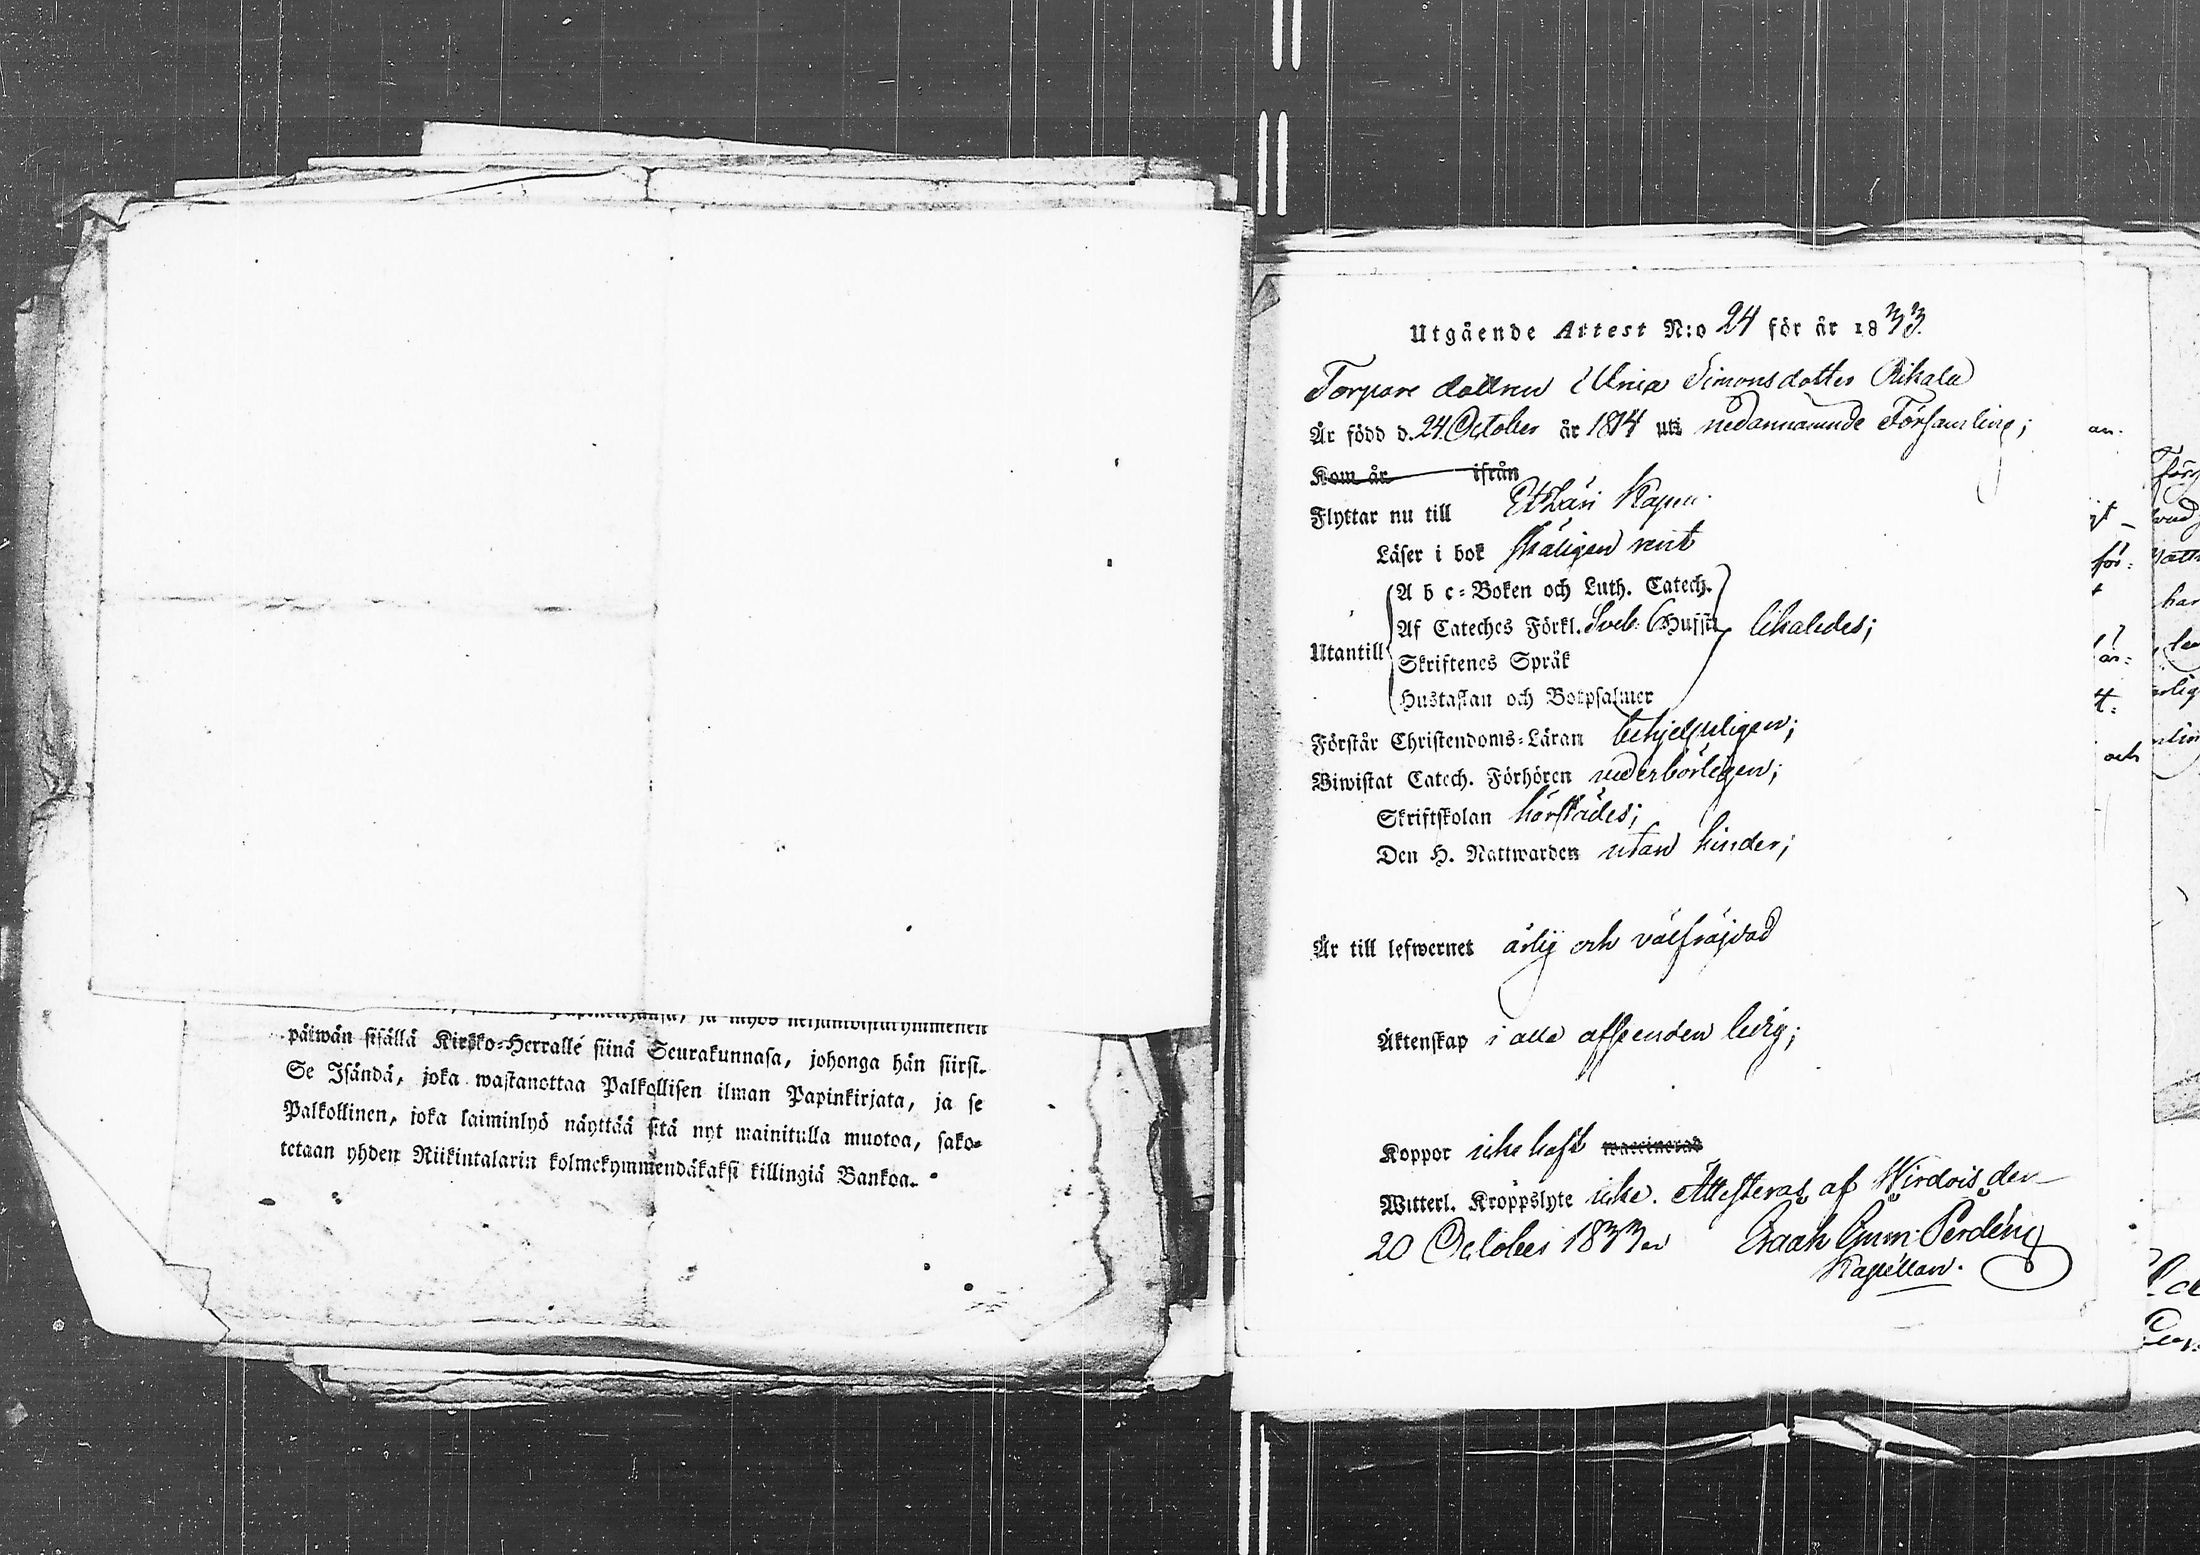 päiwän sisällä Kirkko-Herrallé siinä Seurakunnasa, johonga hän siirsi.
Se Isändä, joka wastanottaa Palkollisen ilman Papinkirjata, ja se
Palkollinen, joka laiminlyö näyttää sitä nyt mainitulla muotoa, sako-
tetaan yhden Riikintalarin kolmekymmendäkaksi killingiä Bankoa.
Utgående Attest N:o 24 för år 1833.
Torpare dottren Ulrica Simonsdotter Rikala
Är född d. 24 October år 1814 uti nedannämnde Församling;
Kom år ifrån
Flyttar nu till Etsäri Kapell
Läser i bok skäligen rent
Utantill
A b c-Boken och Luth. Catech.
Af Cateches Förkl. Sveb. likaledes;
Skriftenes Språk
Hustaflan och Botpsalmer
Förstår Christendoms-Läran behjelpeligen;
Biwistat Catech. Förhören vederbörligen;
Skriftskolan härstädes;
Den H. Nattwarden utan hinder;
Är till lefwernet ärlig och välfräjdad
Äktenskap i alla afseenden ledig;
Koppor icke haft waccinerad
Witterl. Kroppslyte icke. Attesteras af Wirdois den
20 October 1833
Kapellan.
an.
för:
och
har